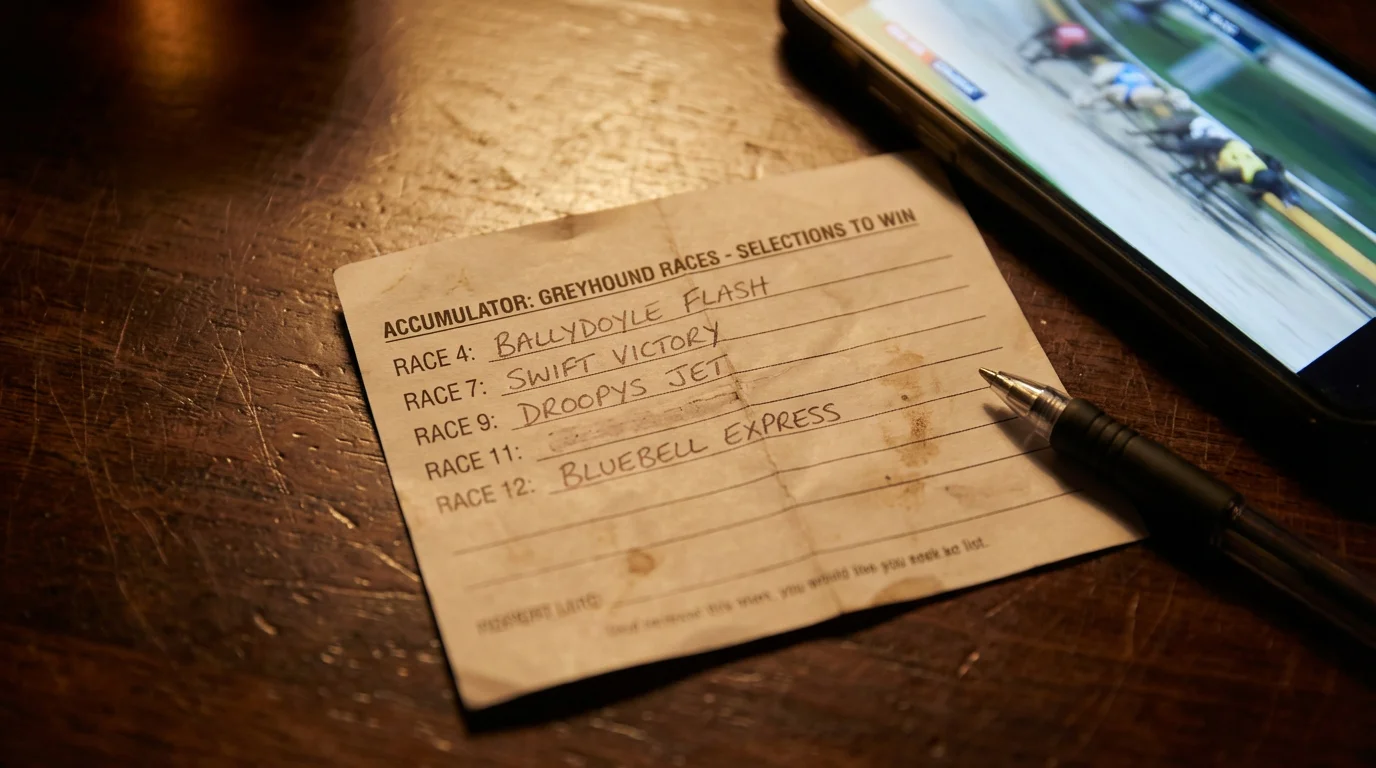 ACCUMULATOR: GREYHOUND RACES - SELECTIONS TO WIN
RACE 4: BALLYDOYLE FLASH
RACE 7: SWIFT VICTORY
RACE 9: DROOPYS JET
RACE 11:
RACE 12: BLUEBELL EXPRESS
you would like you
list.